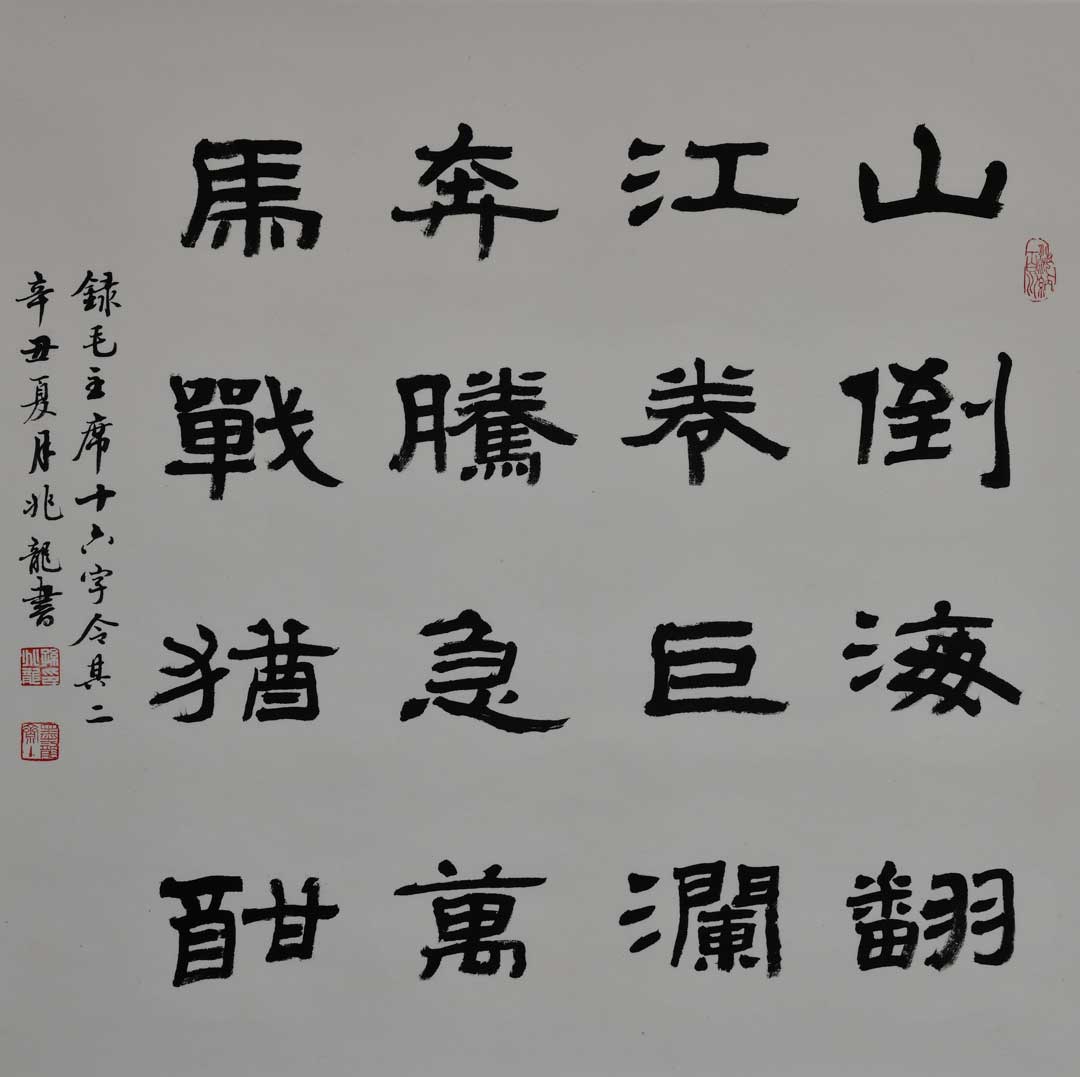 山倒海翻
江卷巨瀾
奔騰急萬
馬戰猶酣
録毛主席十六字令其二
辛丑夏月兆龍書